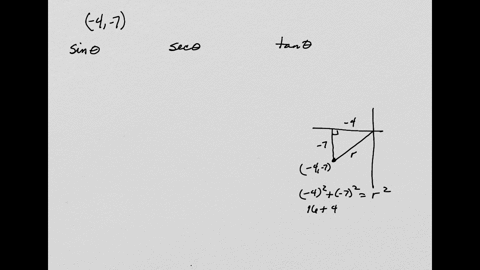 (-4,-7)
sinθ secθ tanθ
-4
-7
r
(-4,-7)
(-4)²+(-7)²=r²
16+4